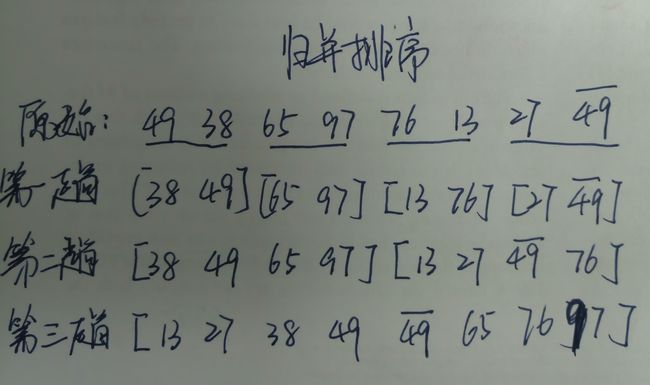 归并排序
原始: 49 38 65 97 76 13 27 4̅9̅
第一趟 [38 49] [65 97] [13 76] [27 4̅9̅]
第二趟 [38 49 65 97] [13 27 4̅9̅ 76]
第三趟 [13 27 38 49 4̅9̅ 65 76 97]